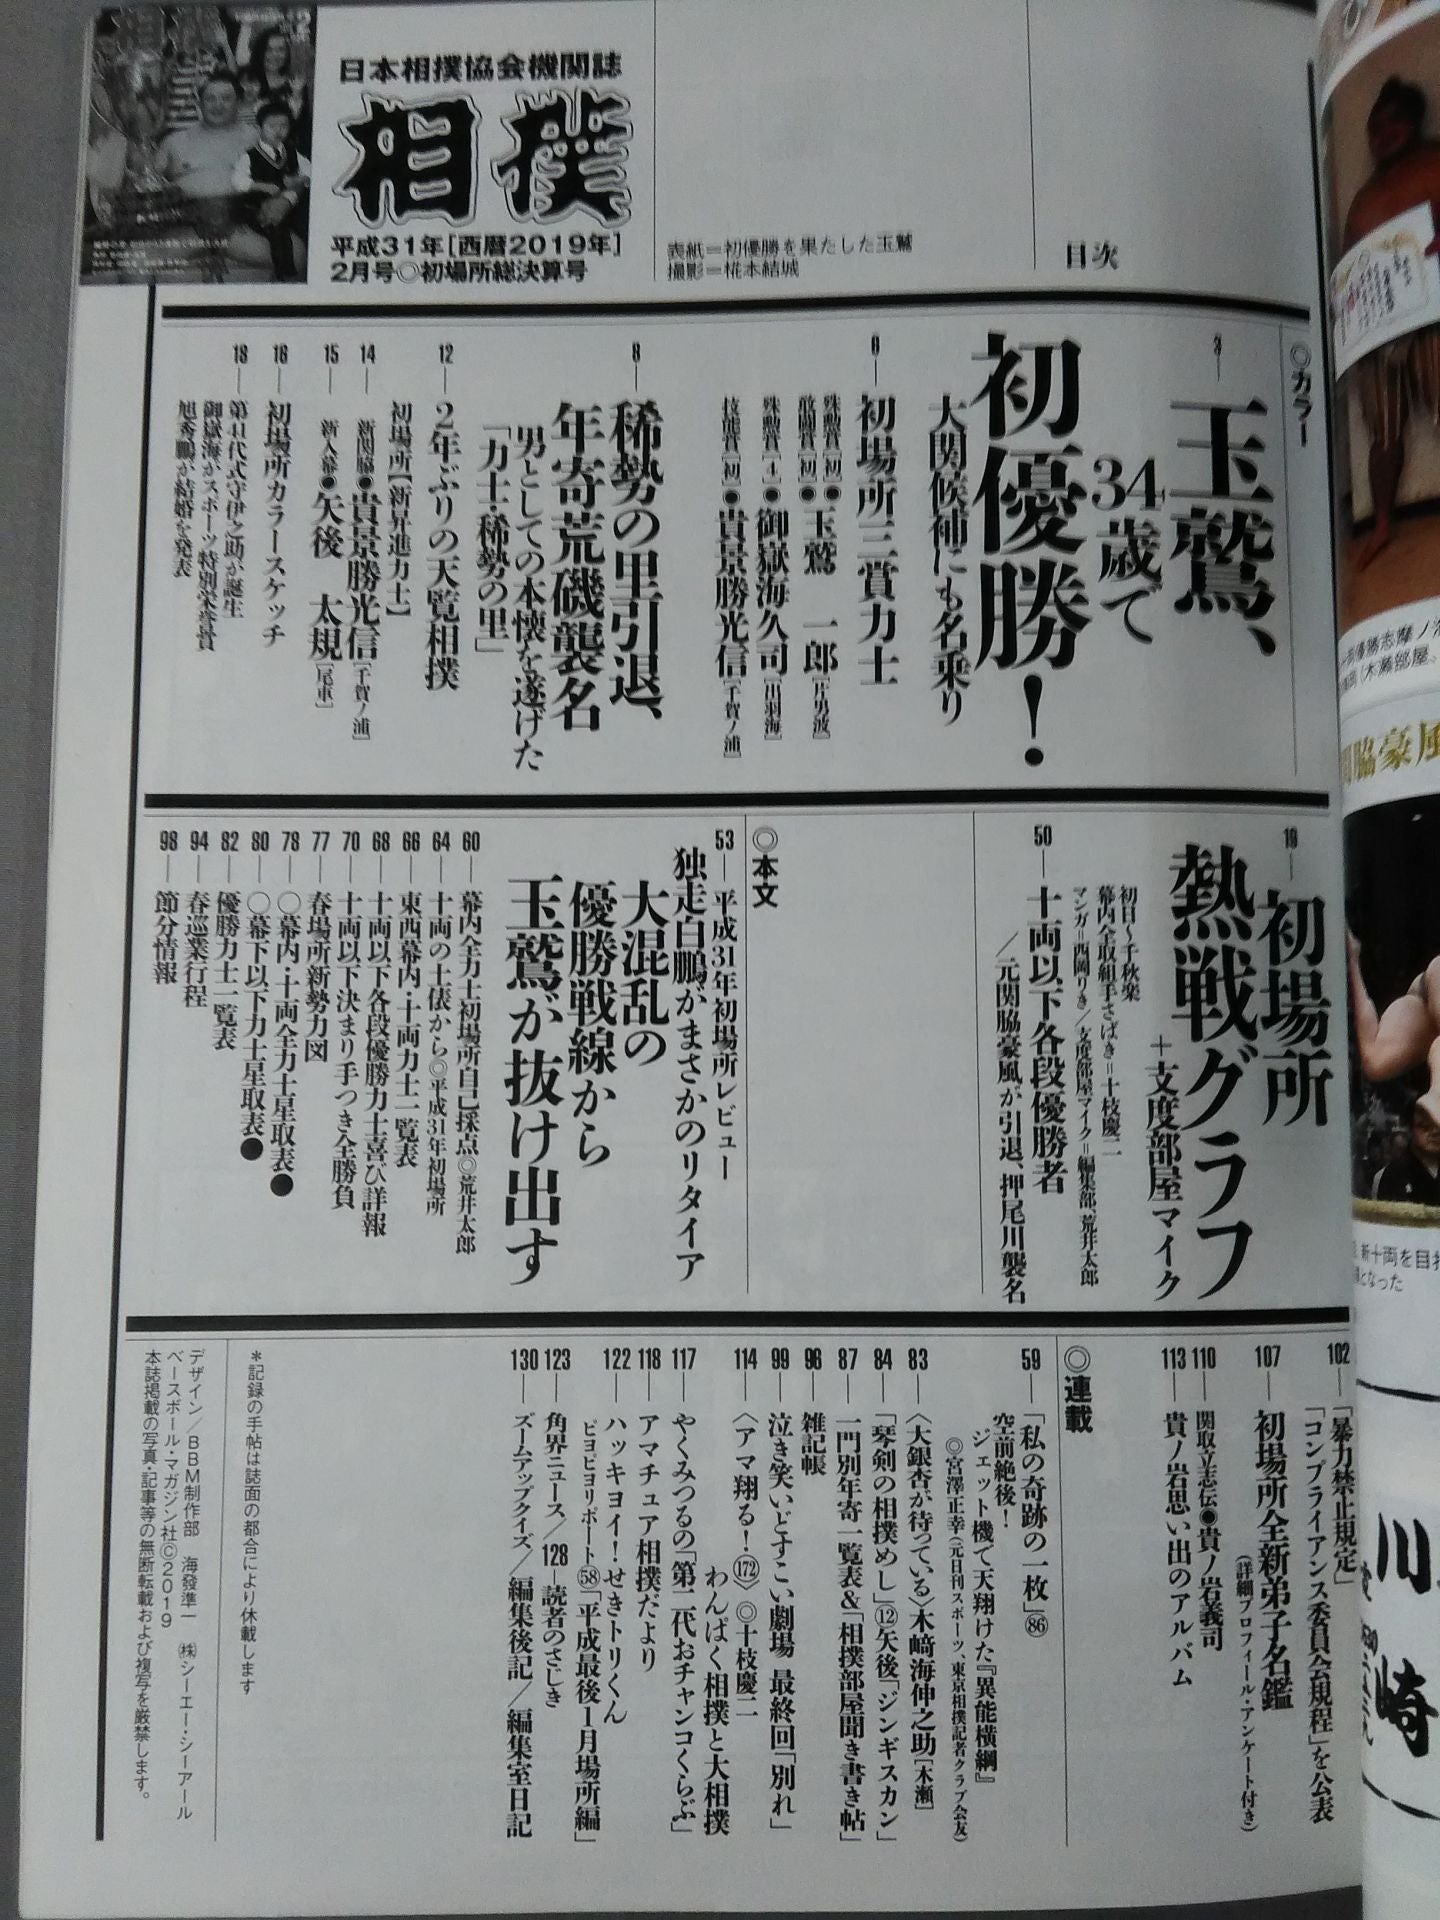 日本相撲協会機関誌
相撲
平成31年[西暦2019年]
2月号◎初場所総決算号
表紙=初優勝を果たした玉鷲
撮影=椛本結城
目次
◎カラー
3—玉鷲、
34歳で
初優勝!
大関候補にも名乗り
6—初場所三賞力士
殊勲賞[初]
敢闘賞[初]●玉鷲 一郎[片男波]
殊勲賞[4]●御嶽海久司[出羽海]
技能賞[初]●貴景勝光信[千賀ノ浦]
8—稀勢の里引退、
年寄荒磯襲名
男としての本懐を遂げた
「力士・稀勢の里」
12—2年ぶりの天覧相撲
初場所[新昇進力士]
14—新関脇●貴景勝光信[千賀ノ浦]
15—新入幕●矢後 太規[尾車]
16—初場所カラースケッチ
18—第41代式守伊之助が誕生
御嶽海がスポーツ特別栄誉賞
旭秀鵬が結婚を発表
19—初場所
熱戦グラフ
+支度部屋マイク
初日〜千秋楽
幕内全取組手さばき=十枝慶二
マンガ=西岡りき/支度部屋マイク=編集部、荒井太郎
50—十両以下各段優勝者
/元関脇豪風が引退、押尾川襲名
◎本文
53—平成31年初場所レビュー
独走白鵬がまさかのリタイア
大混乱の
優勝戦線から
玉鷲が抜け出す
60—幕内全力士初場所自己採点◎荒井太郎
64—十両の土俵から◎平成31年初場所
66—東西幕内・十両力士一覧表
68—十両以下各段優勝力士喜び詳報
70—十両以下決まり手つき全勝負
77—春場所新勢力図
78—○幕内・十両全力士星取表●
80—○幕下以下力士星取表●
82—優勝力士一覧表
94—春巡業行程
98—節分情報
102—「暴力禁止規定」
「コンプライアンス委員会規程」を公表
107—初場所全新弟子名鑑
(詳細プロフィール・アンケート付き)
110—関取立志伝●貴ノ岩義司
113—貴ノ岩思い出のアルバム
◎連載
59—「私の奇跡の一枚」86
空前絶後!
ジェット機で天翔けた『異能横綱』
◎宮澤正幸(元日刊スポーツ、東京相撲記者クラブ会友)
83—〈大銀杏が待っている〉木﨑海伸之助[木瀬]
84—「琴剣の相撲めし」⑫矢後「ジンギスカン」
87—一門別年寄一覧表&「相撲部屋聞き書き帖」
96—雑記帳
99—泣き笑いどすこい劇場 最終回「別れ」
114—〈アマ翔る!172〉◎十枝慶二
わんぱく相撲と大相撲
117—やくみつるの「第二代おチャンコくらぶ」
118—アマチュア相撲だより
122—ハッキヨイ!せきトリくん
ピヨピヨリポート58「平成最後1月場所編」
123—角界ニュース/128—読者のさじき
130—ズームアップクイズ/編集後記/編集室日記
*記録の手帖は誌面の都合により休載します
デザイン/BBM制作部 海發準一 ㈱シーエー・シーアール
ベースボール・マガジン社©2019
本誌掲載の写真・記事等の無断転載および複写を厳禁します。